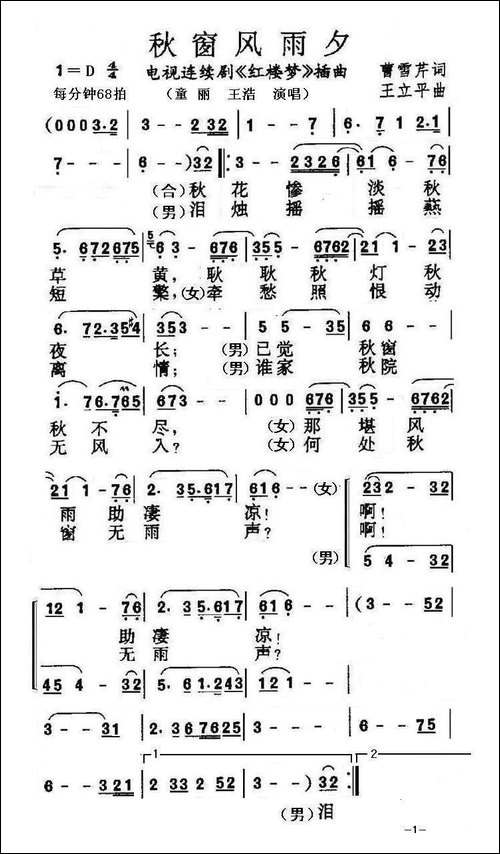 秋窗风雨夕
1=D 4/4 电视连续剧《红楼梦》插曲 曹雪芹词
每分钟68拍 （童丽 王浩 演唱） 王立平曲
(0 0 0 3·2 | 3 - - 2 32 | 5 - - 6 7 | 1 2 0 2·1 |
7 - - | 6 - - )32 |: 3 - - 2326 | 61 6 - 76 |
(合)秋 花 惨 淡 秋
(男)泪 烛 摇 摇 燕
5· 672675 | 5 6 3 - 676 | 355 - 6762 | 21 1 - 23 |
草 黄, 耿 耿 秋 灯 秋
短 檠, (女)牵 愁 照 恨 动
6· 72·354 | 353 - - | 5 5 - 35 | 6 6 - - |
夜 长; (男)已觉 秋窗
离 情; (男)谁家 秋院
1· 76·765 | 763 - - | 0 0 0 676 | 355 - 6762 |
秋 不 尽, (女)那 堪 风
无 风 入? (女)何 处 秋
21 1 - 76 | 2· 35·617 | 616 - - (女) 232 - 32 |
雨 助 凄 凉! 啊!
窗 无 雨 声? 啊!
(男) 5 4 - 32 |
12 1 - 76 | 2· 35·617 | 616 - - | (3 - - 52 |
助 凄 凉!
无 雨 声?
45 4 - 32 | 5· 61·243 | 232 - - |
3 - - 31 | 2·367625 | 3 - - - | 6 - - 75 |
1 2
6 - - 321 | 2 33 2 52 | 3 - - )32 :|
(男)泪
-1-